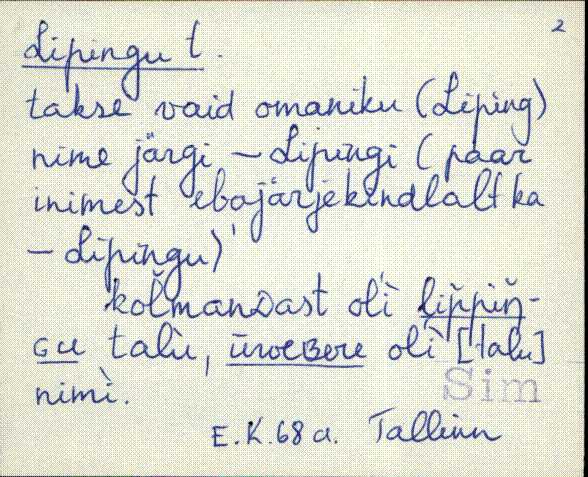 2
Lipingu t.
takse vaid omaniku (Liping)
nime järgi – Lipingi (paar
inimest ebajärjekindlalt ka
– Lipingu)
kolmandast oĺì
talù, oĺì [talu]
nimì.
Sim
E.K. 68 a. Tallinn